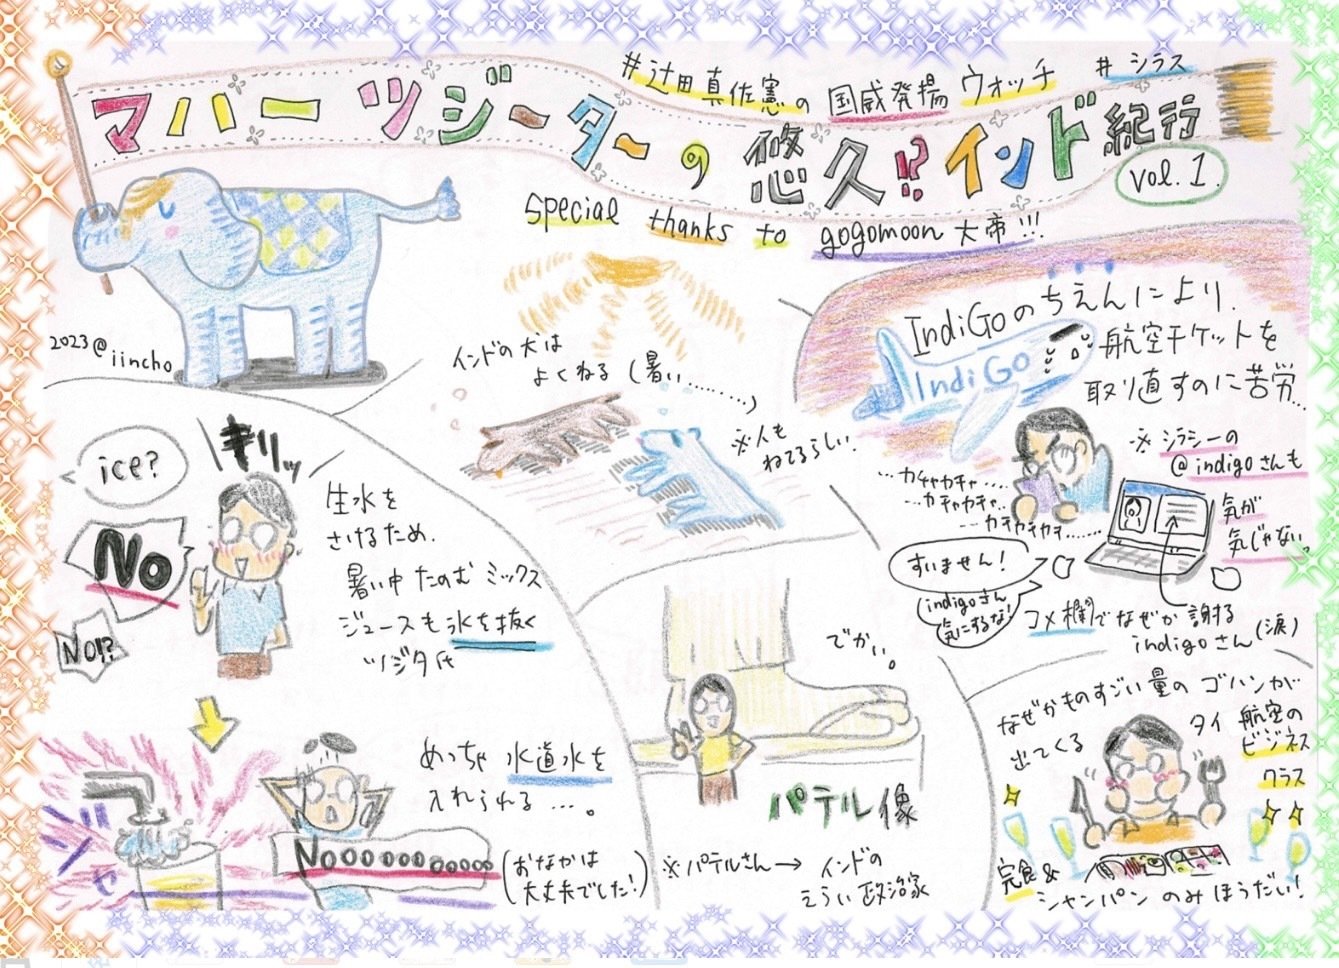 #辻田真佐憲の国威発揚ウォッチ #シラス
マハーツジーターの悠久!?インド紀行
vol.1.
special thanks to gogomoon大帝!!!
2023@iincho
インドの犬は
よくねる(暑い……)
※人も
ねてるらしい.
IndiGoのちえんにより.
航空チケットを
取り直すのに苦労…
IndiGo
※シラシーの
@indigoさんも
気が
気じゃない。
…カチャカチャ…
…カチャカチャ…
…カチャカチャ……
すいません!
indigoさん
気にするな!
コメ欄でなぜか謝る
indigoさん(涙)
ice?
キリッ
No
No!?
生水を
さけるため.
暑い中たのむミックス
ジュースも氷を抜く
ツジタ氏
めっちゃ水道水を
入れられる…。
Noooooooooooo
(おなかは
大丈夫でした!)
でかい。
パテル像
※パテルさん→インドの
えらい政治家
なぜかものすごい量のゴハンが
出てくる
タイ航空の
ビジネス
クラス
完食&
シャンパンのみほうだい!